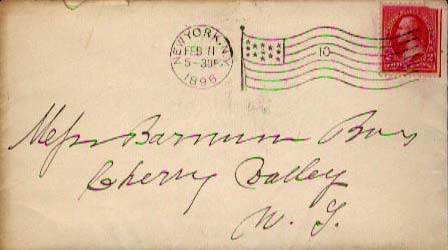 NEW YORK, N.Y.
FEB 11
5-30P
1896
10
Mess Barnum Bros
Cherry Valley
N. Y.